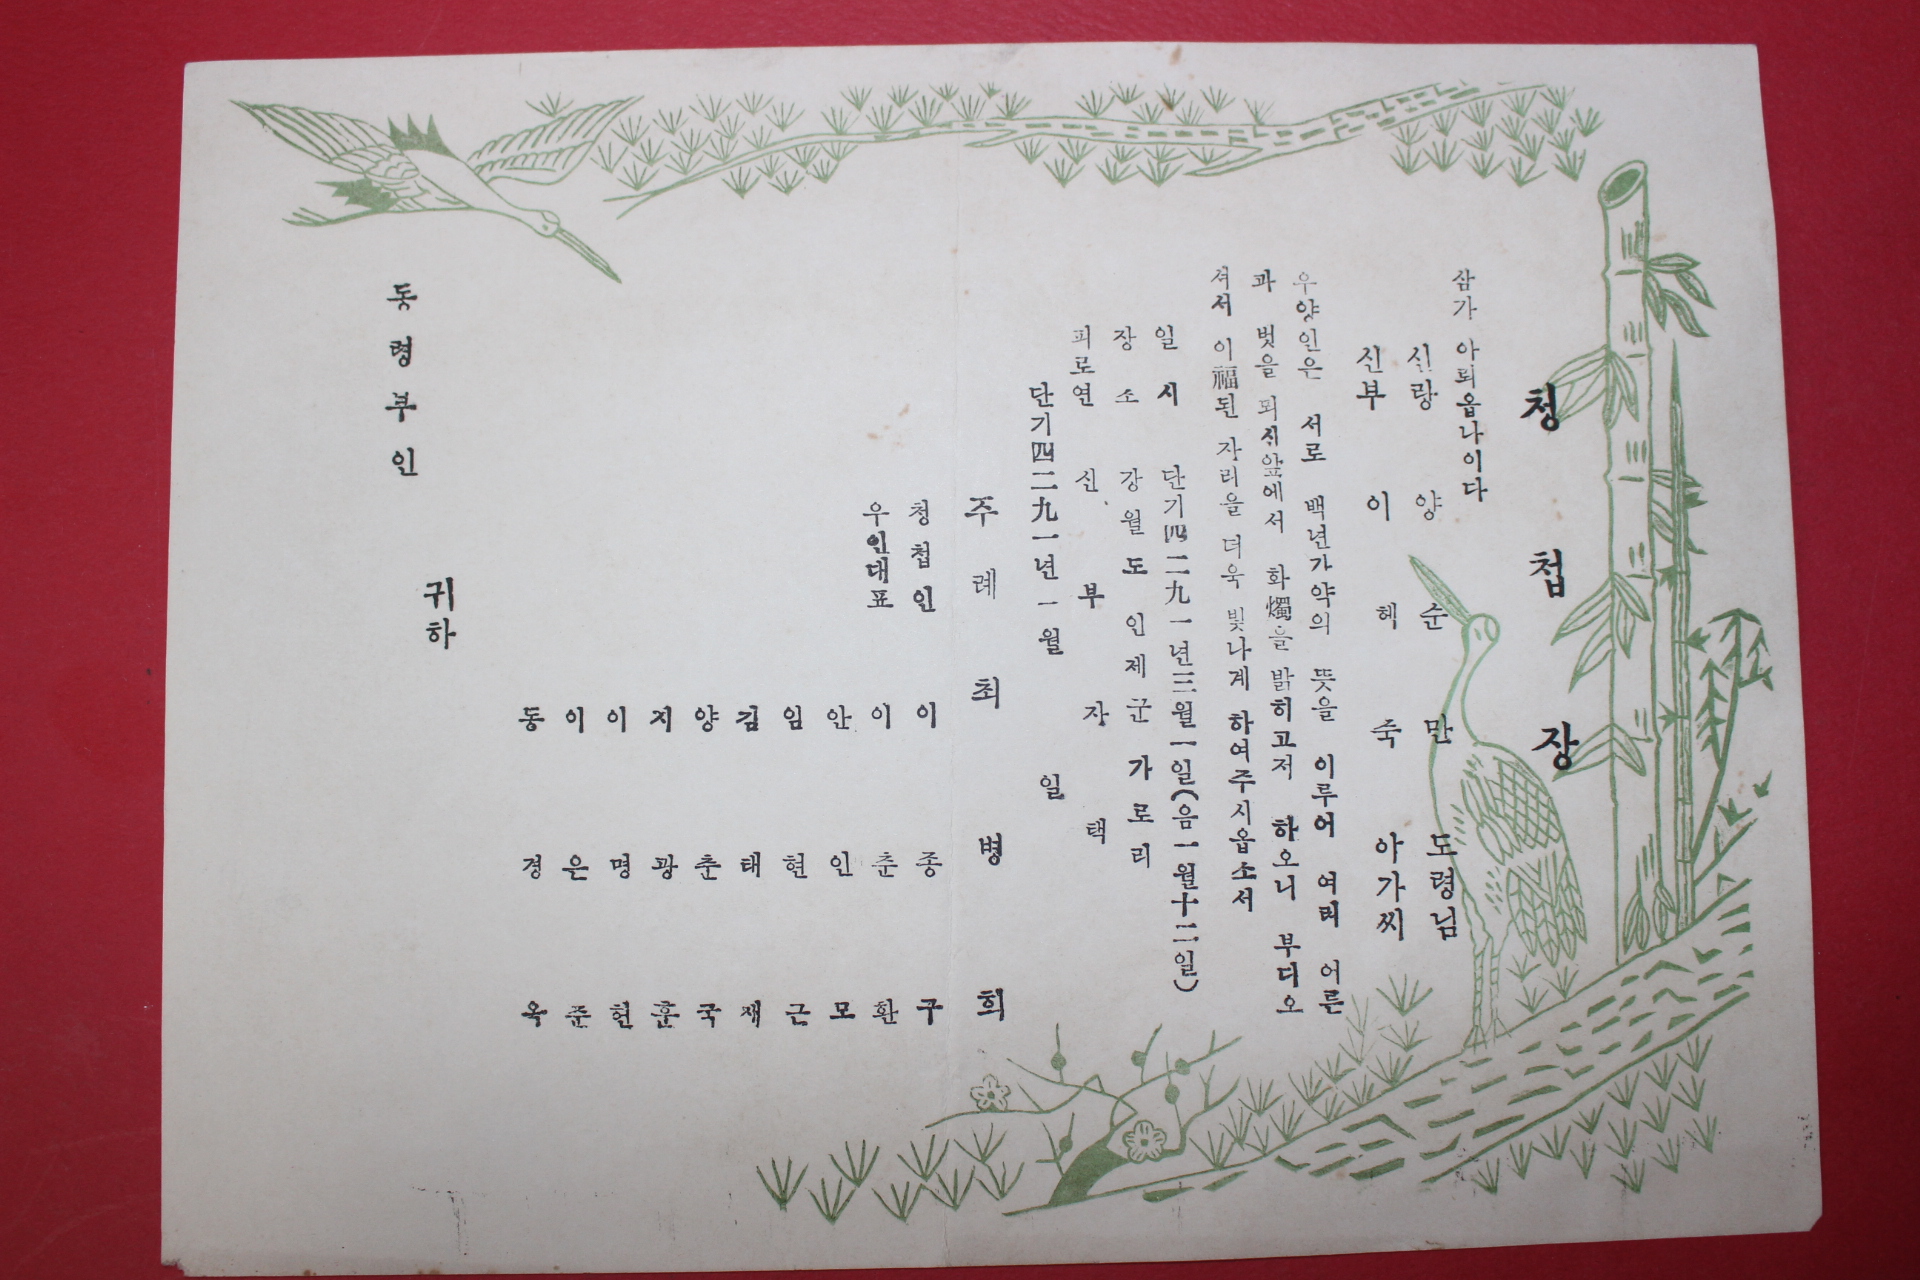 청첩장
삼가 아뢰옵나이다
신랑 양순만 도령님
신부 이혜숙 아가씨
우양인은 서로 백년가약의 뜻을 이루어 여러 어른
과 벗을 뫼신앞에서 화燭을 밝히고저 하오니 부디오
셔서 이福된 자리를 더욱 빛나게 하여주시옵소서
일시 단기四二九一년三월一일(음一월十二일)
장소 강원도 인제군 가로리
피로연 신부자택
단기四二九一년一월 일
주례 최병희
청첩인 이종구
우인대표 이춘환
안인모
임현근
김태재
양춘국
지광훈
이명헌
이은준
동경옥
동령부인
귀하